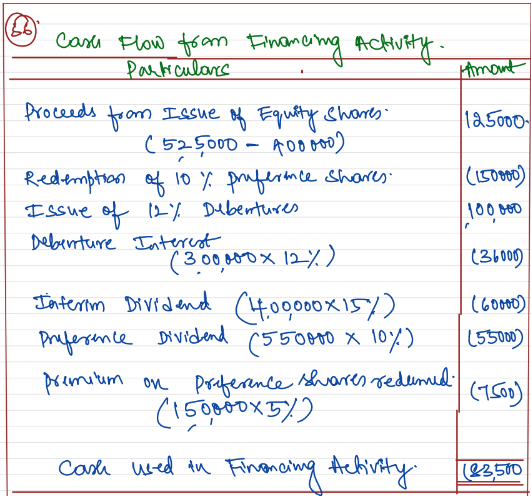 56
Cash Flow from Financing Activity.
Particulars Amount
Proceeds from Issue of Equity Shares. 125000.
(525000 - 400000)
Redemption of 10% preference shares. (150000)
Issue of 12% Debentures 100,000
Debenture Interest
(3,00,000 x 12%) (36000)
Interim Dividend (4,00,000x15%) (60000)
preference Dividend (550000 x 10%) (55000)
premium on Preference shares redeemed. (7500)
(150000x5%)
Cash used in Financing Activity. (83,500